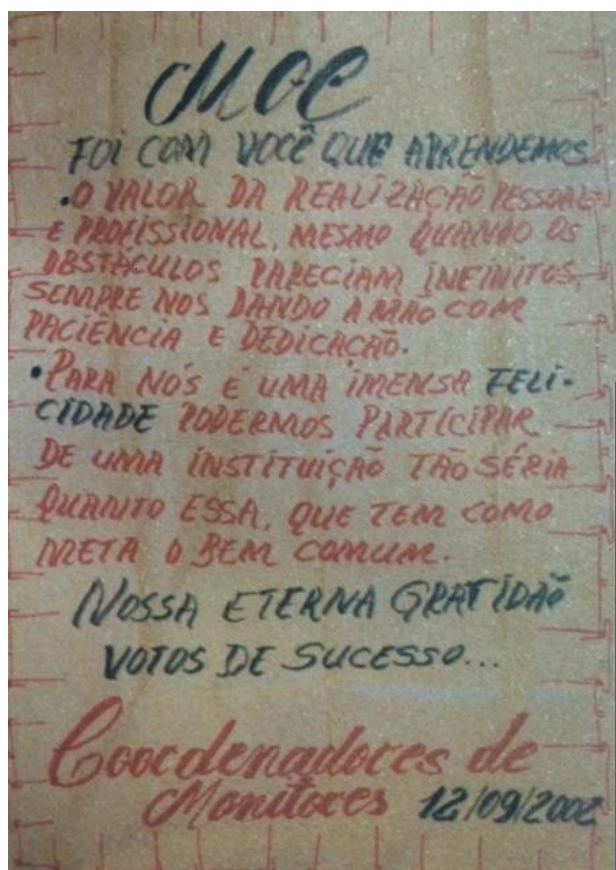 MOC
FOI COM VOCÊ QUE APRENDEMOS
.O VALOR DA REALIZAÇÃO PESSOAL
E PROFISSIONAL, MESMO QUANDO OS
OBSTÁCULOS PARECIAM INFINITOS,
SEMPRE NOS DANDO A MÃO COM
PACIÊNCIA E DEDICAÇÃO.
•PARA NÓS É UMA IMENSA FELI-
CIDADE PODERMOS PARTICIPAR
DE UMA INSTITUIÇÃO TÃO SÉRIA
QUANTO ESSA, QUE TEM COMO
META O BEM COMUM.
NOSSA ETERNA GRATIDÃO
VOTOS DE SUCESSO...
Coordenadores de
Monitores 12/09/2002